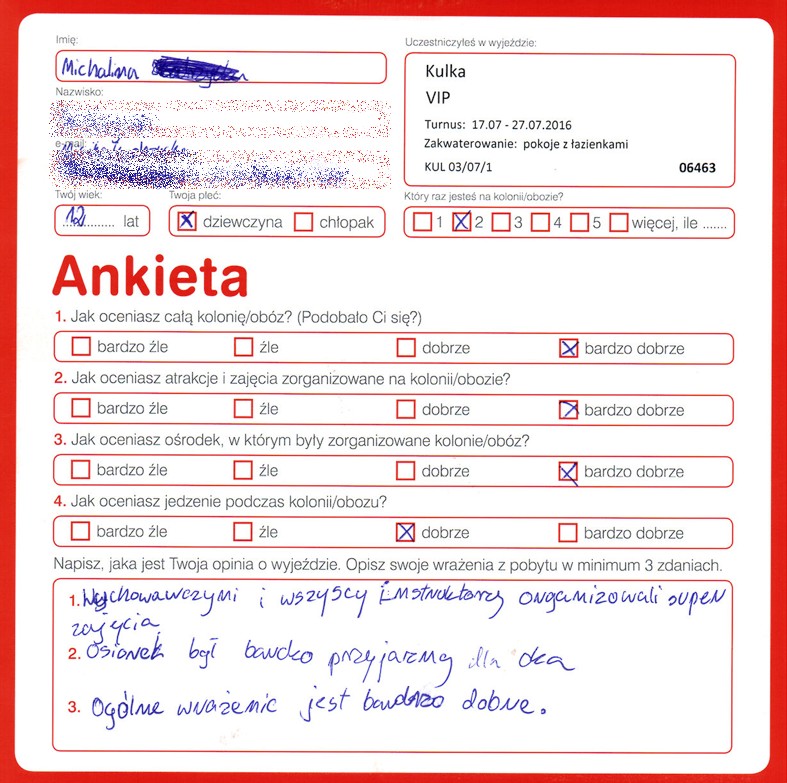 Imię:
Michalina
Uczestniczyłeś w wyjeździe:
Kulka
VIP
Turnus: 17.07 - 27.07.2016
Zakwaterowanie: pokoje z łazienkami
KUL 03/07/1 06463
Nazwisko:
e-mail:
Twój wiek:
12 lat
Twoja płeć:
dziewczyna chłopak
Który raz jesteś na kolonii/obozie?
1 2 3 4 5 więcej, ile .......
Ankieta
1. Jak oceniasz całą kolonię/obóz? (Podobało Ci się?)
bardzo źle źle dobrze bardzo dobrze
2. Jak oceniasz atrakcje i zajęcia zorganizowane na kolonii/obozie?
bardzo źle źle dobrze bardzo dobrze
3. Jak oceniasz ośrodek, w którym były zorganizowane kolonie/obóz?
bardzo źle źle dobrze bardzo dobrze
4. Jak oceniasz jedzenie podczas kolonii/obozu?
bardzo źle źle dobrze bardzo dobrze
Napisz, jaka jest Twoja opinia o wyjeździe. Opisz swoje wrażenia z pobytu w minimum 3 zdaniach.
1. Wychowawczymi i wszyscy instruktorzy organizowali super
zajęcia
2. był przyjazny dla
3. Ogólne wrażenie jest bardzo dobre.